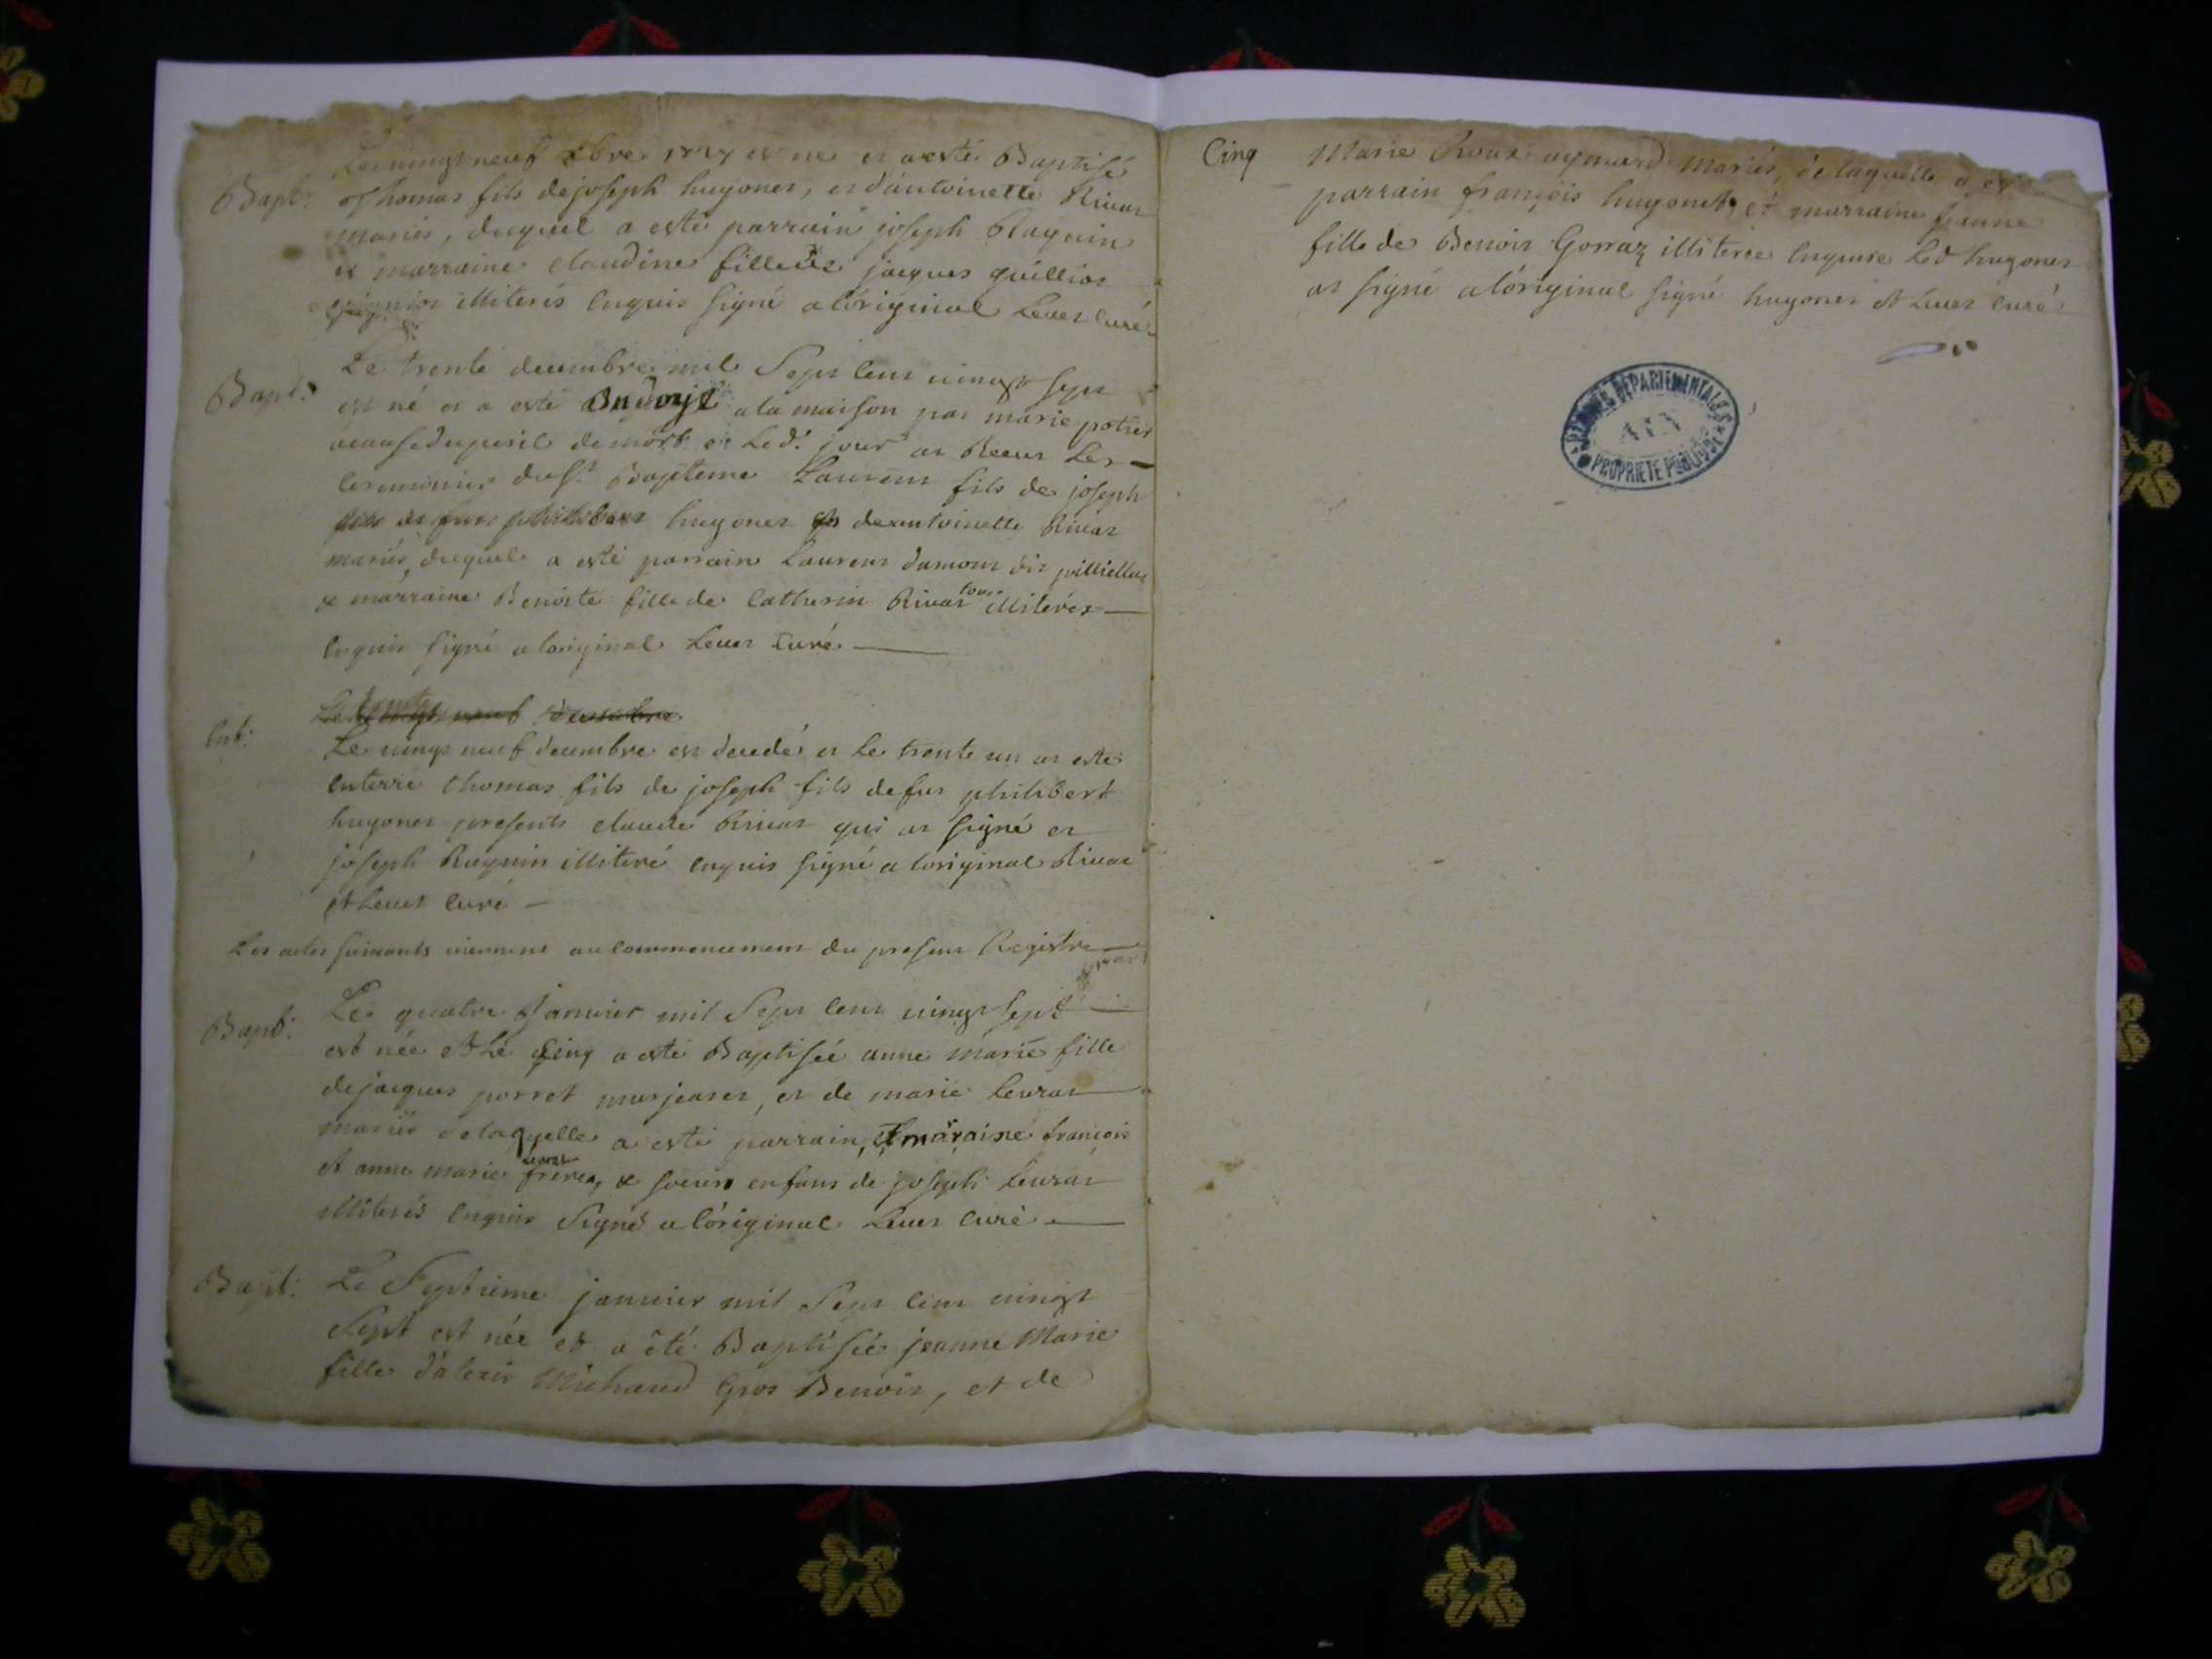 Le vingt neuf xbre 1727 est né et a esté Baptisé
Bapt: Thomas fils de joseph hugonet, et d'antoinette Rivat
mariés, duquel a esté parrain joseph Raquin
et marraine claudine fille de jacques quilliot
illiterés enquis signé a l'original Levet curé
Bapt: Le trente decembre mil sept cent vingt sept
est né et a esté Ondoyé a la maison par marie potier
acause du peril de mort et led. jour at Receu les
ceremonies du st Bapteme Laurent fils de joseph
hugonet et de antoinette Rivat
mariés, duquel a esté parrain Laurent damour dit
& marraine Benoite fille de Catherin Rivat tous illiterés
enquis signé a l'original Levet curé
Le vingt neuf decembre
Ent: Le vingt neuf decembre est decedé et le trente un at esté
enterré thomas fils de joseph fils de feu philibert
hugonet presents claude Rivat qui at signé et
joseph Raquin illiteré enquis signé a l'original Rivat
et Levet curé
Les actes suivants viennent au commencement du present Registre
Bapt: Le quatre Janvier mil sept cent vingt sept
est née et le cinq a esté Baptisée anne marie fille
de jacques porret murjearet, et de marie levrat
mariés de laquelle a esté parrain, et maraine françois
et anne marie levrat freres, & soeurs enfans de joseph levrat
illiterés enquis signé a l'original Levet curé
Bapt: Le Septieme janvier mil sept cent vingt
sept est née et a été Baptisée jeanne Marie
fille d'alexis Michaud Gros Benoit, et de
Cinq Marie Proux aymard mariés, de laquelle a esté
parrain françois hugonet, et marraine jeanne
fille de Benoit Gorraz illiterée enquise led hugonet
at signé a l'original signé hugonet et Levet curé
ARCHIVES DEPARTEMENTALES
AIN
PROPRIETE PUBLIQUE